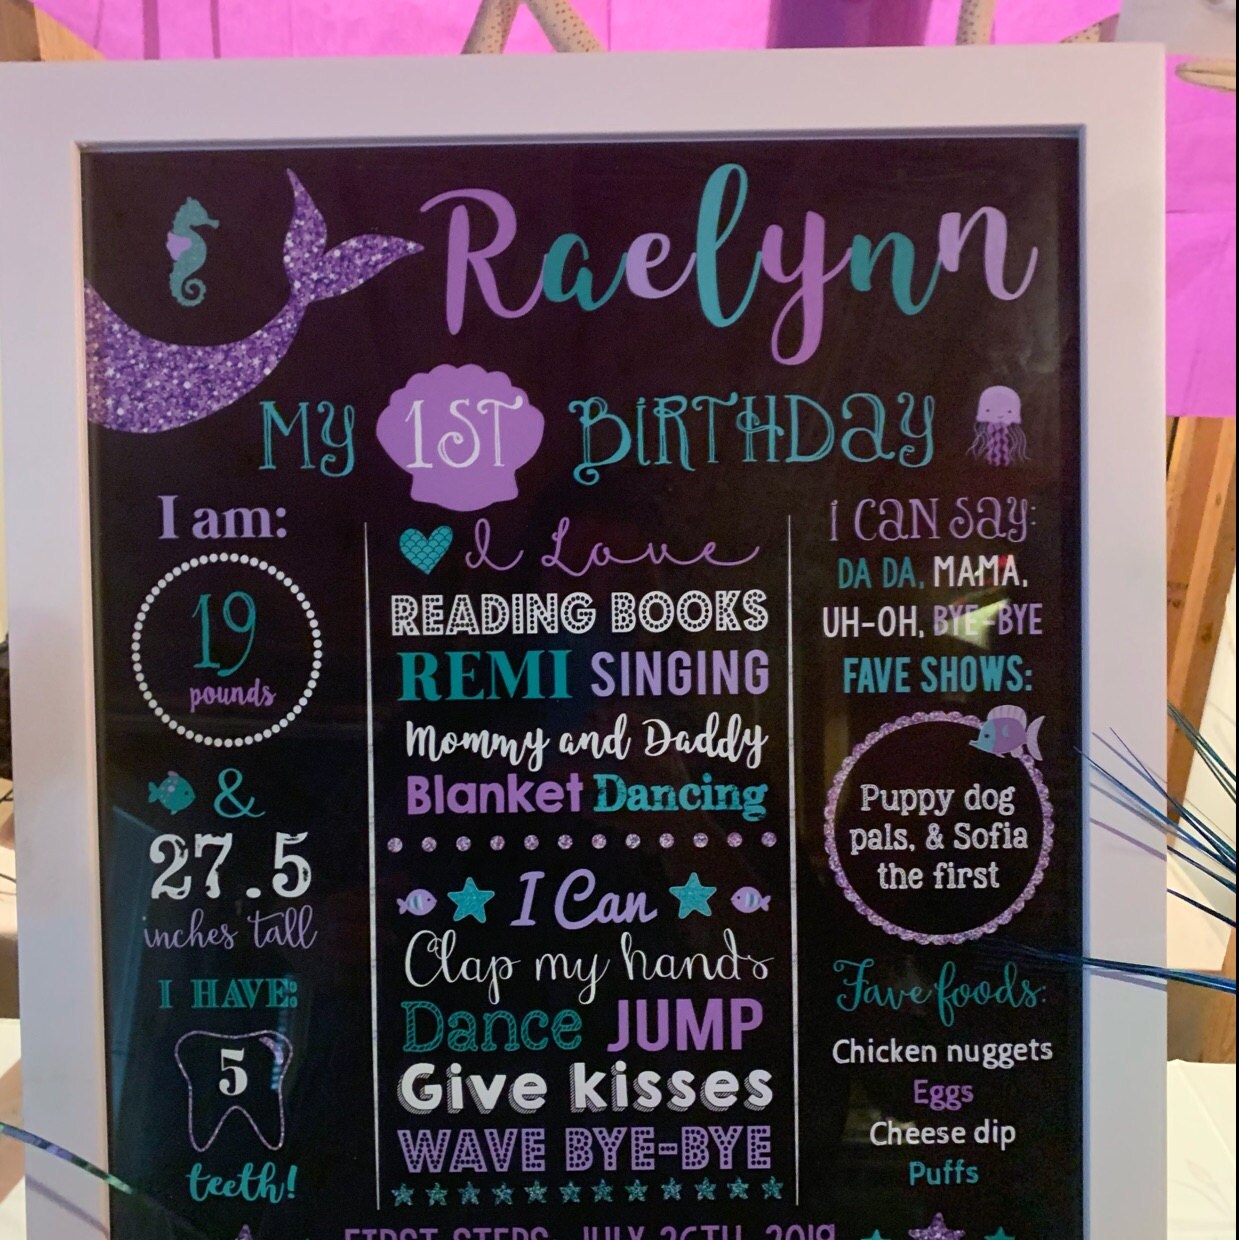 Raelynn
My 1ST Birthday
I am:
19
pounds
&
27.5
inches tall
I HAVE:
5
teeth!
I Love
READING BOOKS
REMI SINGING
Mommy and Daddy
Blanket Dancing
I Can
Clap my hands
Dance JUMP
Give kisses
WAVE BYE-BYE
I CAN SAY:
DA DA, MAMA,
UH-OH, BYE-BYE
FAVE SHOWS:
Puppy dog
pals, & Sofia
the first
Fave foods:
Chicken nuggets
Eggs
Cheese dip
Puffs
FIRST STEPS JULY 26TH, 2019